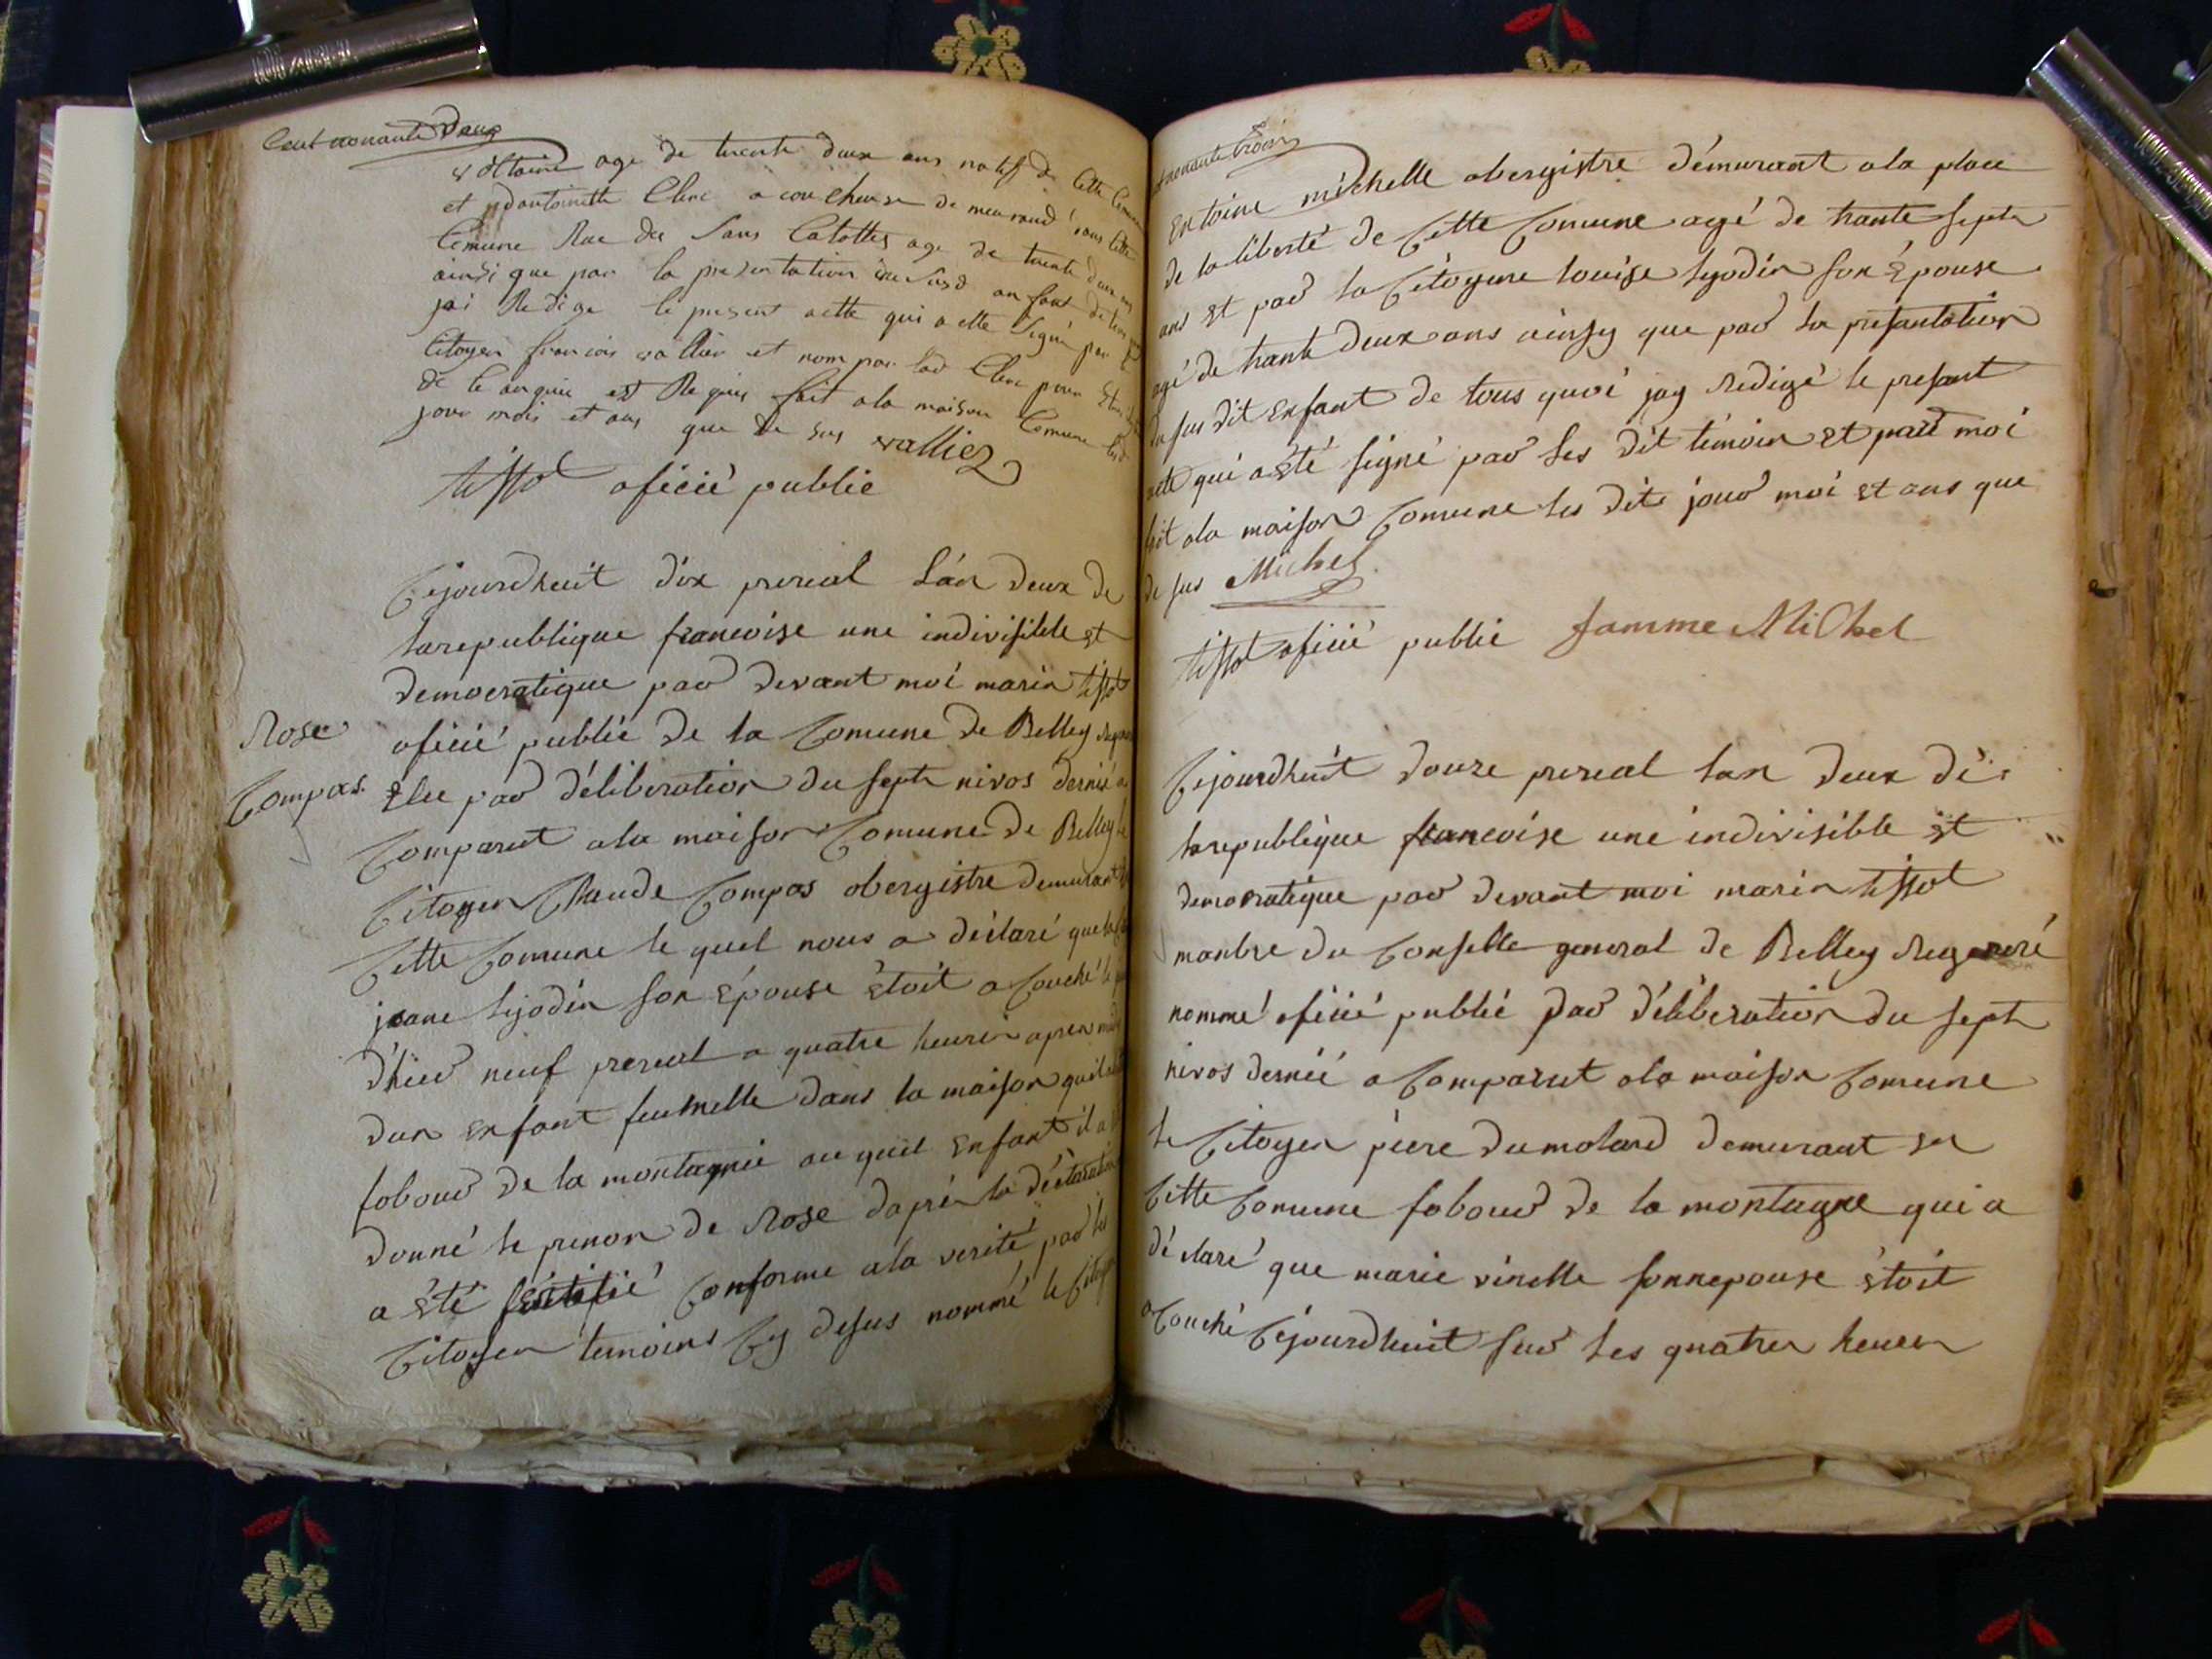 Cent nonante Deux
voltaire age de trente deux ans natif de Cette
et dantoinette Clerc acoucheuse de meurand dans Cette
Comune Rue des Sans Calottes age de trente deux ans
ainsi que par la presentation du susd anfant de tous
jai Redige le present acte qui a ette Signé par
Citoyen francois vallier et nom par lad Clerc pour
de le anquis et Requis fait ala maison Comune
jour mois et ans que de sus valliez
tissot oficié public
Cejourdhuit dix prereal L'an deux de
larepublique francoise une indivisible et
democratique par devant moi marin tissot
Rose
oficié public de la Comune de Belley
Compas
Elu par déliberation du septe nivos dernié a
Comparut ala maison Comune de Belley le
Citoyen Claude Compas obergistre demurant
Cette Comune le quel nous a déclaré que la
jeane Lyodin son épouse étoit acouché le
d'hier neuf prereal a quatre heures apres midi
dun enfant feumelle dans la maison quil
fobour de la montagnie au quel enfant il a
donné le prenon de Rose daprés la déclaration
a été sertifié Conforme ala verité par les
Citoyen temoins Cy desus nommé le Citoyen
nonante trois
Entoine michelle obergistre démurant ala place
de la liberté de Cette Comune agé de trante septe
ans et par la Citoyene louise lyodin son épouse
agé de trante deux ans ainsy que par la presantation
du sus dit enfant de tous quoi jay Redigé le presant
acte qui a été signé par les dit témoin et par moi
fait ala maison Comune les dite jour moi et ans que
de sus Michel
tissot oficié public famme Michel
Cejourdhuit douze prereal lan deux de
larepublique francoise une indivisible et
democratique par devant moi marin tissot
manbre du Conselle general de Belley Regeneré
nommé oficié publié par déliberation du septe
nivos dernié a Comparut ala maison Comune
le Citoyen piere dumolard demurant en
Cette Comune fobour de la montagne qui a
déclaré que marie vinelle sonnepouse étoit
acouché Cejourdhuit sur les quatres heures